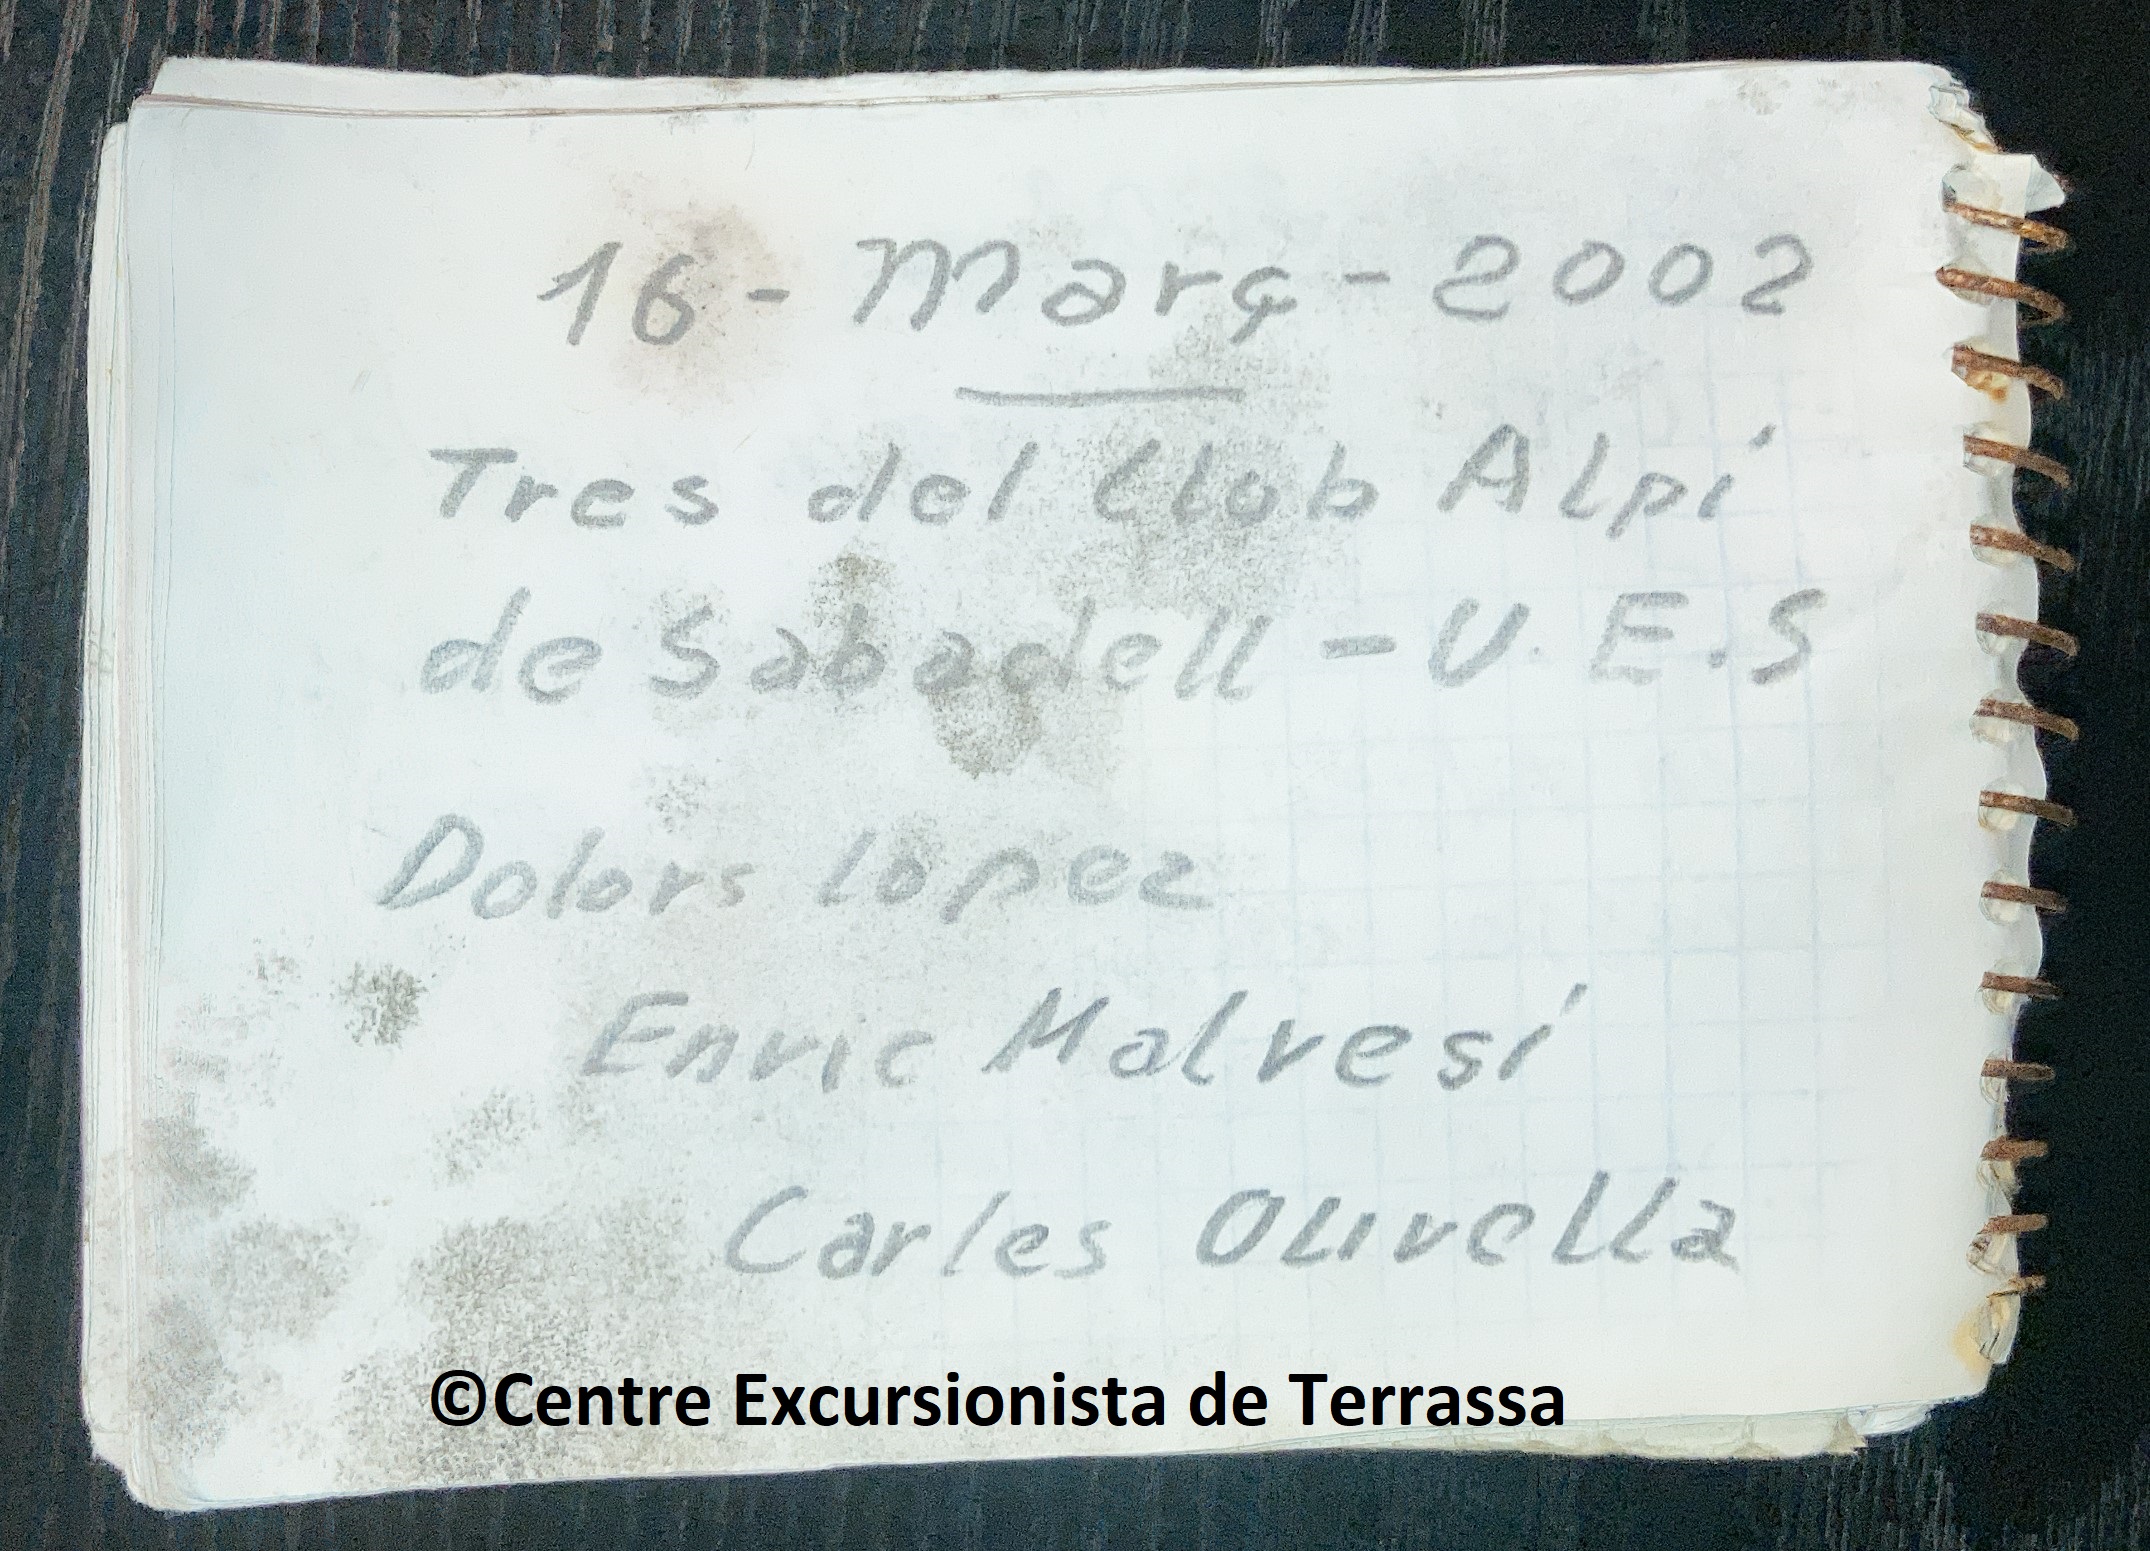 16 - Març - 2002
Tres del Club Alpí
de Sabadell - U.E.S
Dolors Lopez
Enric Malvesí
Carles Olivella
©Centre Excursionista de Terrassa